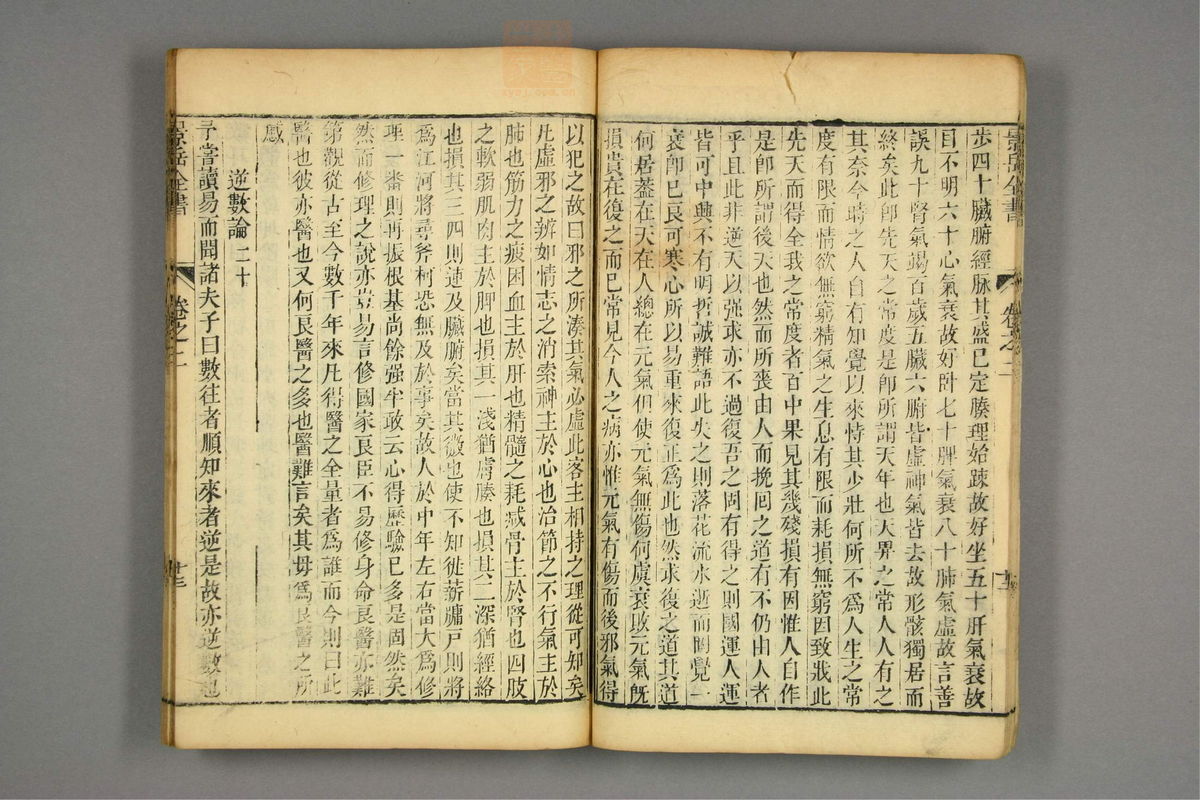 景岳全書
卷之二
步四十臟腑經脉其盛已定腠理始踈故好坐五十肝氣衰故
目不明六十心氣衰故好卧七十脾氣衰八十肺氣虛故言善
誤九十腎氣竭百歲五臟六腑皆虛神氣皆去故形骸獨居而
終矣此卽先天之常度是卽所謂天年也天畀之常人人有之
其奈今時之人自有知覺以來恃其少壯何所不爲人生之常
度有限而情欲無窮精氣之生息有限而耗損無窮因致戕此
先天而得全我之常度者百中果見其幾殘損有因惟人自作
是卽所謂後天也然而所喪由人而挽囘之道有不仍由人者
乎且此非逆天以强求亦不過復吾之固有得之則國運人運
皆可中興不有明哲誠難語此失之則落花流水逝而罔覺一
衰卽已良可寒心所以易重來復正爲此也然求復之道其道
何居蓋在天在人總在元氣但使元氣無傷何虞衰敗元氣旣
損貴在復之而已常見今人之病亦惟元氣有傷而後邪氣得
以犯之故曰邪之所湊其氣必虛此客主相持之理從可知矣
凡虛邪之辨如情志之消索神主於心也治節之不行氣主於
肺也筋力之疲困血主於肝也精髓之耗减骨主於腎也四肢
之軟弱肌肉主於脾也損其一淺猶膚腠也損其二深猶經絡
也損其三四則連及臟腑矣當其微也使不知徙薪牖戶則將
爲江河將尋斧柯恐無及於事矣故人於中年左右當大爲修
理一番則再振根基尚餘强半敢云心得歷驗已多是固然矣
然而修理之說亦豈易言修國家良臣不易修身命良醫亦難
第觀從古至今數千年來凡得醫之全量者爲誰而今則曰此
醫也彼亦醫也又何良醫之多也醫難言矣其毋爲良醫之所
惑
逆數論 二十
予嘗讀易而聞諸夫子曰數往者順知來者逆是故亦逆數也
景岳全書
卷之二
十三